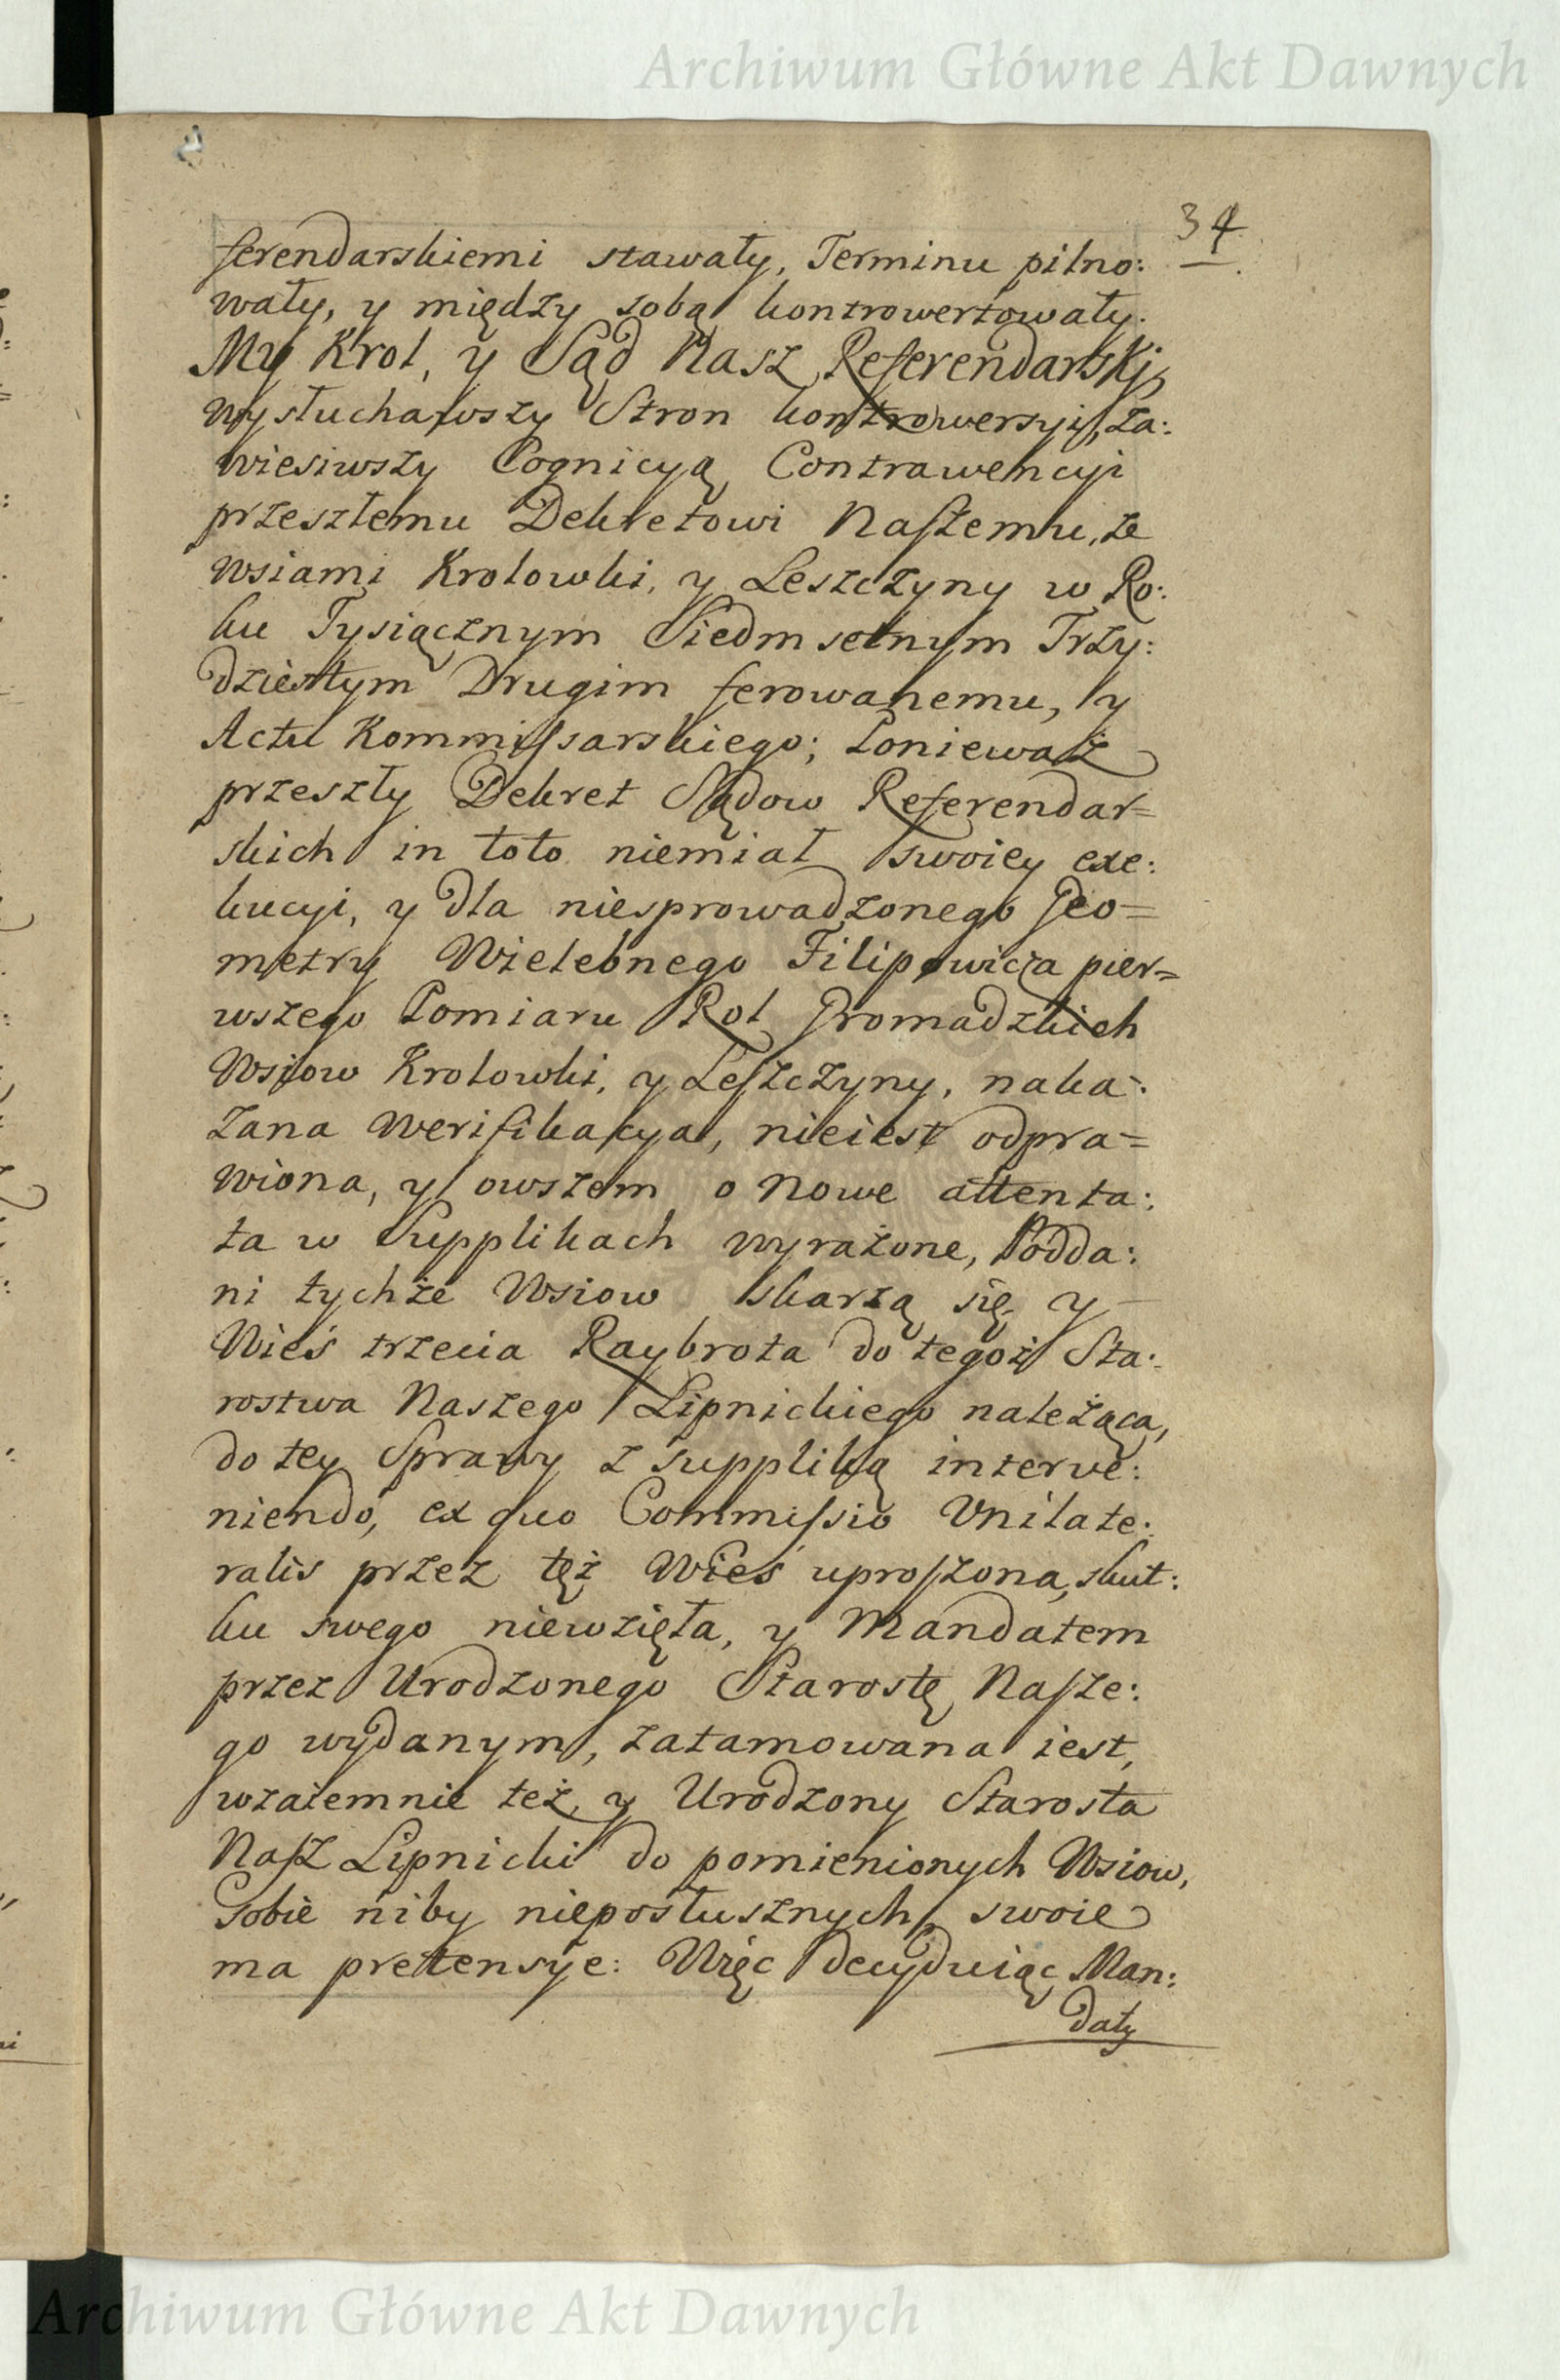 Archiwum Główne Akt Dawnych
34
ferendarskiemi stawały, Terminu pilno:
wały, y między sobą kontrowertowały.
My Krol, y Sąd Nasz Referendarski,
wysłuchawszy Stron kontrowersyi, za:
wiesiwszy Cognicyą Contrawencyi
przeszłemu Dekretowi Naszemu, ze
Wsiami Krolowki, y Leszczyny w Ro:
ku Tysiącznym Siedmsetnym Trzy:
dziestym Drugim ferowanemu, y
Actu Kommissarskiego; Poniewaz
przeszły Dekret Sądow Referendar=
skich in toto niemiał swoiey exe:
kucyi, y dla niesprowadzonego Geo=
metry Wielebnego Filipowicza pier=
wszego Pomiaru Rol Gromadzkich
Wsiow Krolowki, y Leszczyny, naka:
zana Werifikacya, nieiest odpra=
wiona, y owszem o nowe attenta:
ta w Supplikach wyrażone, Podda:
ni tychże Wsiow skarzą się, y
Wieś trzecia Raybrota do tegoż Sta:
rostwa Naszego Lipnickiego należąca,
do tey Sprawy z suppliką interve:
niendo, ex quo Commissio Unilate:
ralis przez tęż Wieś uproszona, skut:
ku swego niewzięła, y Mandatem
przez Urodzonego Starostę Nasze:
go wydanym, zatamowana iest,
wzaiemnie też, y Urodzony Starosta
Nasz Lipnicki do pomienionych Wsiow,
sobie niby nieposłusznych, swoie
ma prettensye: Więc decyduiąc Man:
daty
Archiwum Główne Akt Dawnych